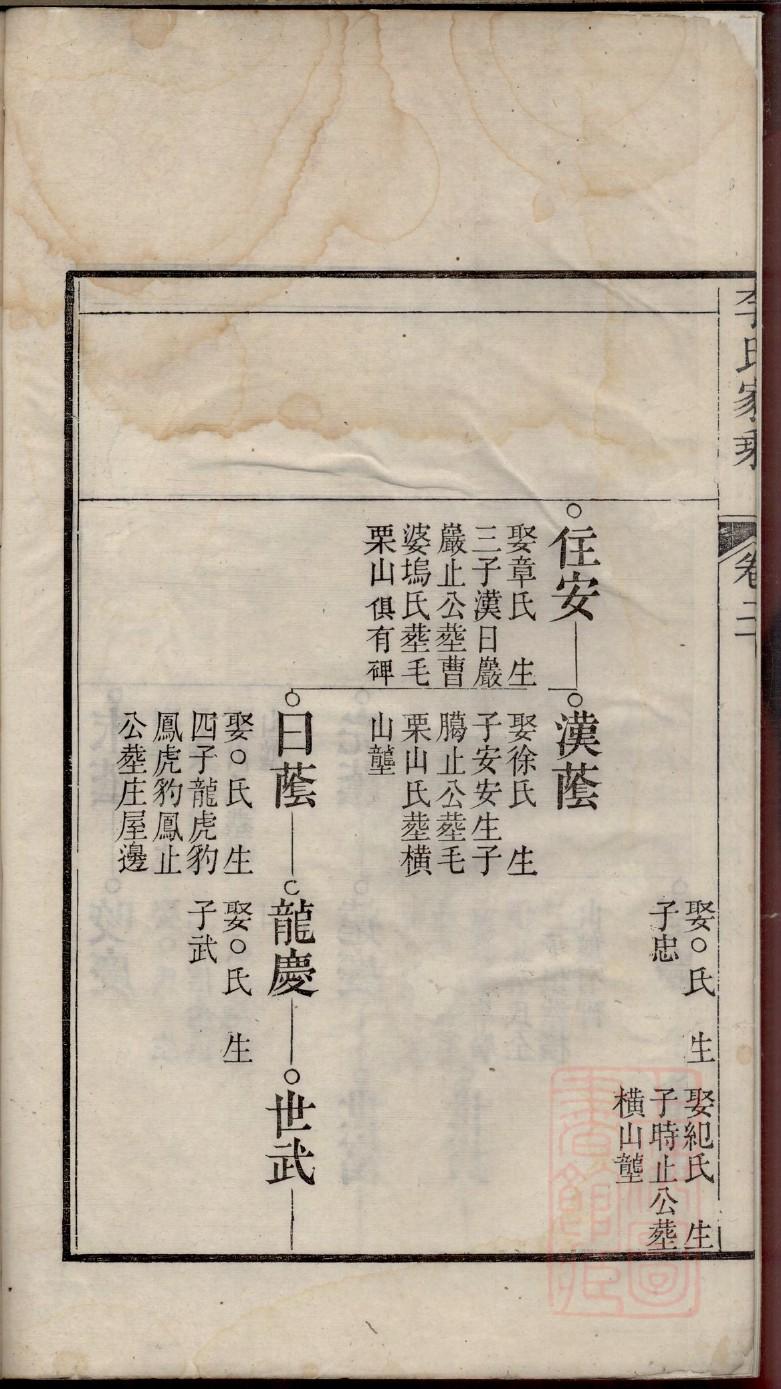 李氏家乘
卷三
娶○氏　生
子忠
娶紀氏　生
子時止公塟
橫山壟
○任安
娶章氏　生
三子漢日嚴
嚴止公塟曹
婆塢氏塟毛
栗山俱有碑
○漢蔭
娶徐氏　生
子安安生子
臈止公塟毛
栗山氏塟橫
山壟
○日蔭
娶○氏　生
四子龍虎豹
鳳虎豹鳳止
公塟庄屋邊
○龍慶
娶○氏　生
子武
○世武